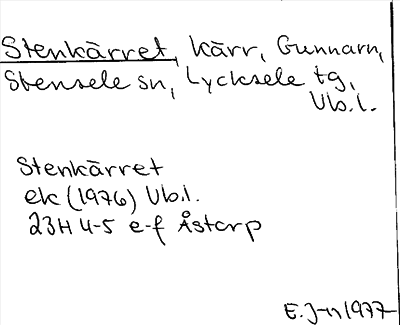 Stenkärret, kärr, Gunnarn,
Stensele sn, Lycksele tg,
Vb.l.
Stenkärret
ek (1976) Vb.l.
23H 4-5 e-f Åstorp
E.J-n 1977